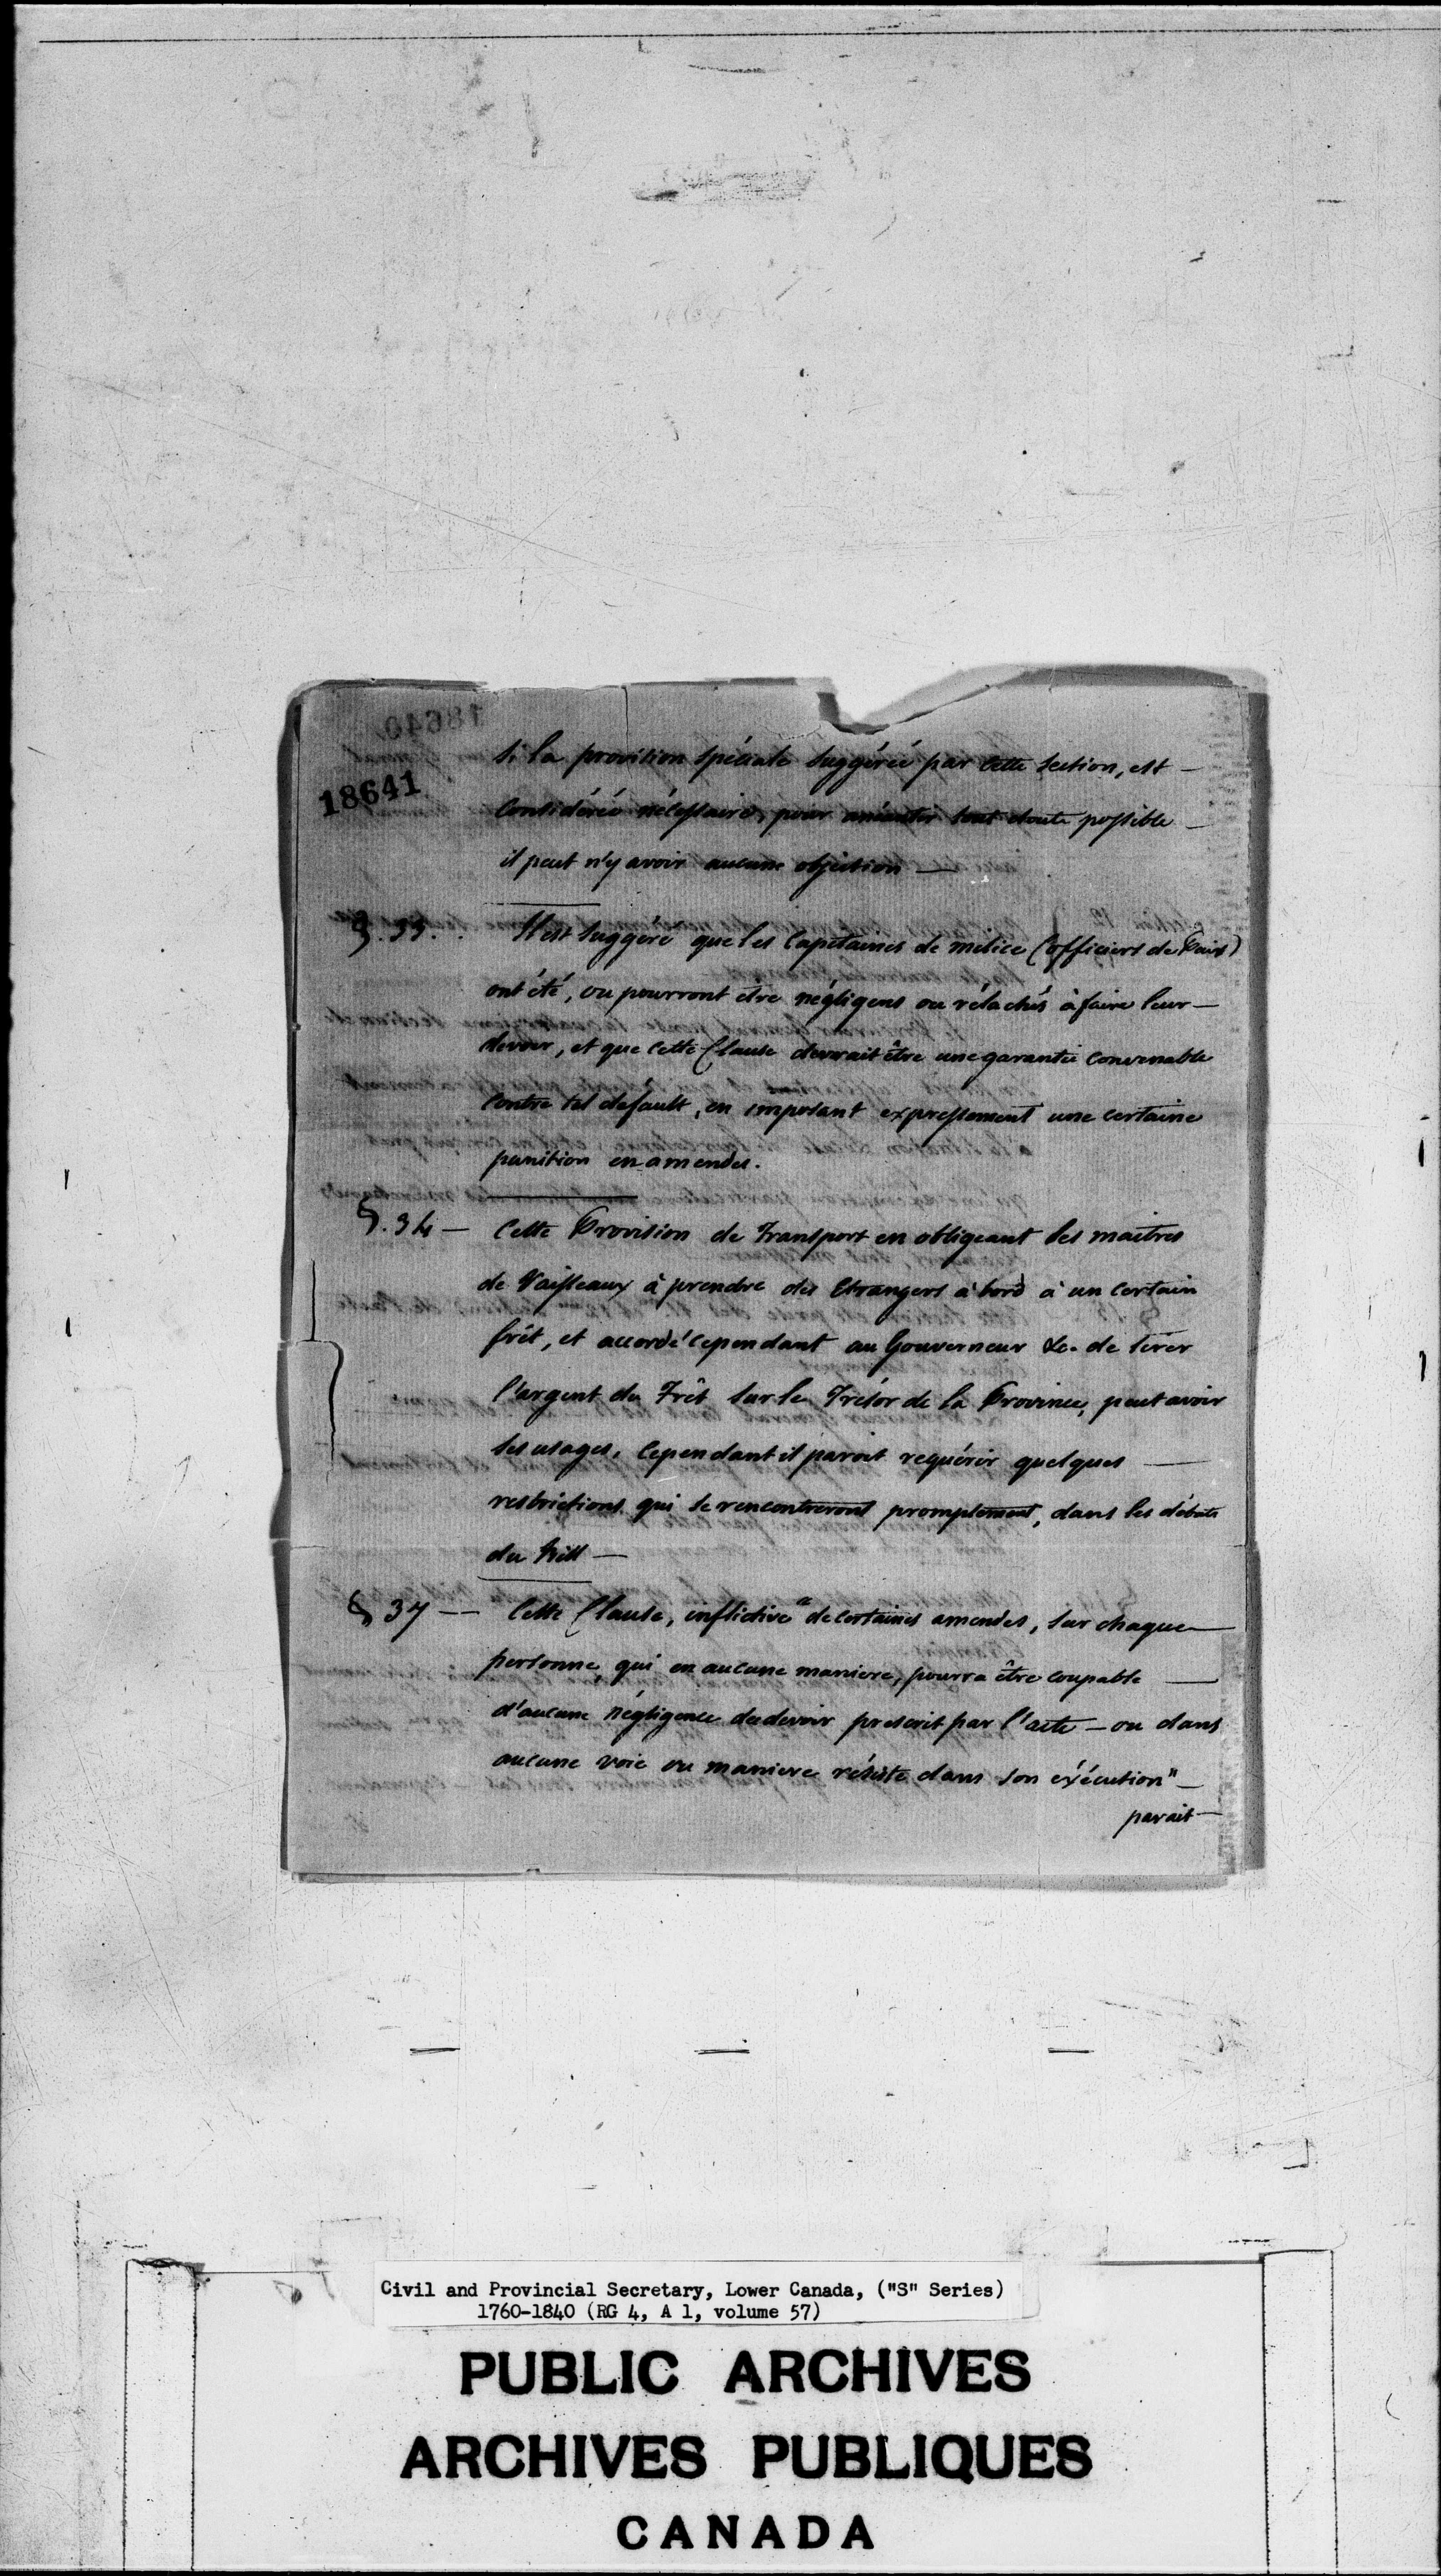 18641
si la provision spéciale suggérée par cette section, est —
considérée nécessaire, pour anéantir tout doute possible —
il peut n'y avoir aucune objection —
§. 33. . Il est suggéré que les Capitaines de milice (officiers de Paix)
ont été, ou pourront être négligens ou rélachés à faire leur —
devoir, et que cette Clause devrait être une garantie convenable
contre tel défault, en imposant expressement une certaine
punition en amendes.
§. 34 — Cette Provision de Transport en obligeant les maitres
de Vaisseaux à prendre des Etrangers à bord à un certain
frêt, et accordé cependant au Gouverneur &c. de tirer
l'argent du Frêt sur le Trésor de la Province, peut avoir
ses usages, cependant il paroit requérir quelques —
restrictions qui se rencontreront promptement, dans les débats
du bill —
§ 37 — Cette Clause, inflictive " de certaines amendes, sur chaque
personne, qui en aucune maniere, pourra être coupable —
d'aucune négligence du devoir prescrit par l'acte — ou dans
aucune voie ou maniere résiste dans son exécution" —
parait —
Civil and Provincial Secretary, Lower Canada, ("S" Series)
1760-1840 (RG 4, A 1, volume 57)
PUBLIC ARCHIVES
ARCHIVES PUBLIQUES
CANADA